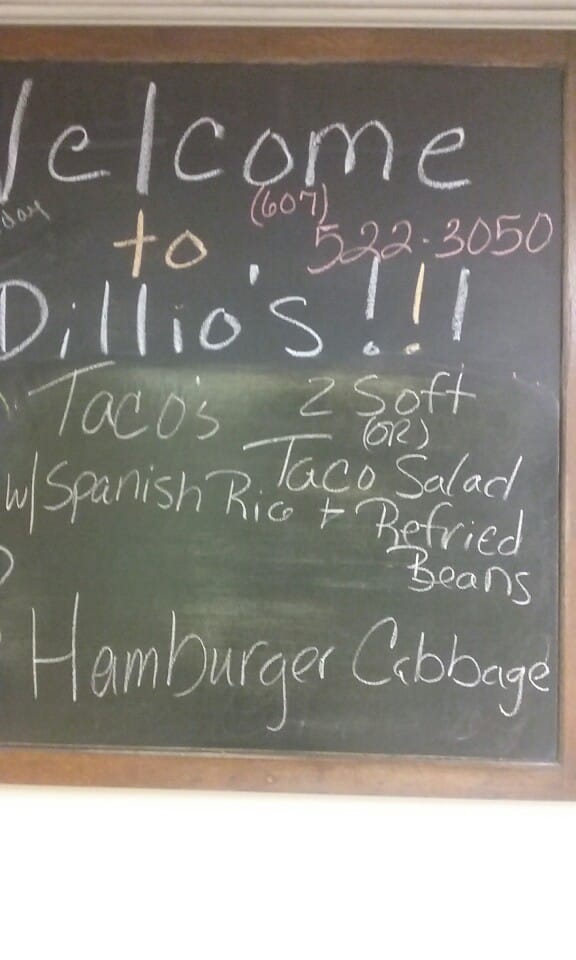 Welcome
(607)
to 522-3050
Dillio's !!!
Taco's 2 Soft
(OR)
Taco Salad
w/ Spanish Rice + Refried
Beans
Hamburger Cabbage